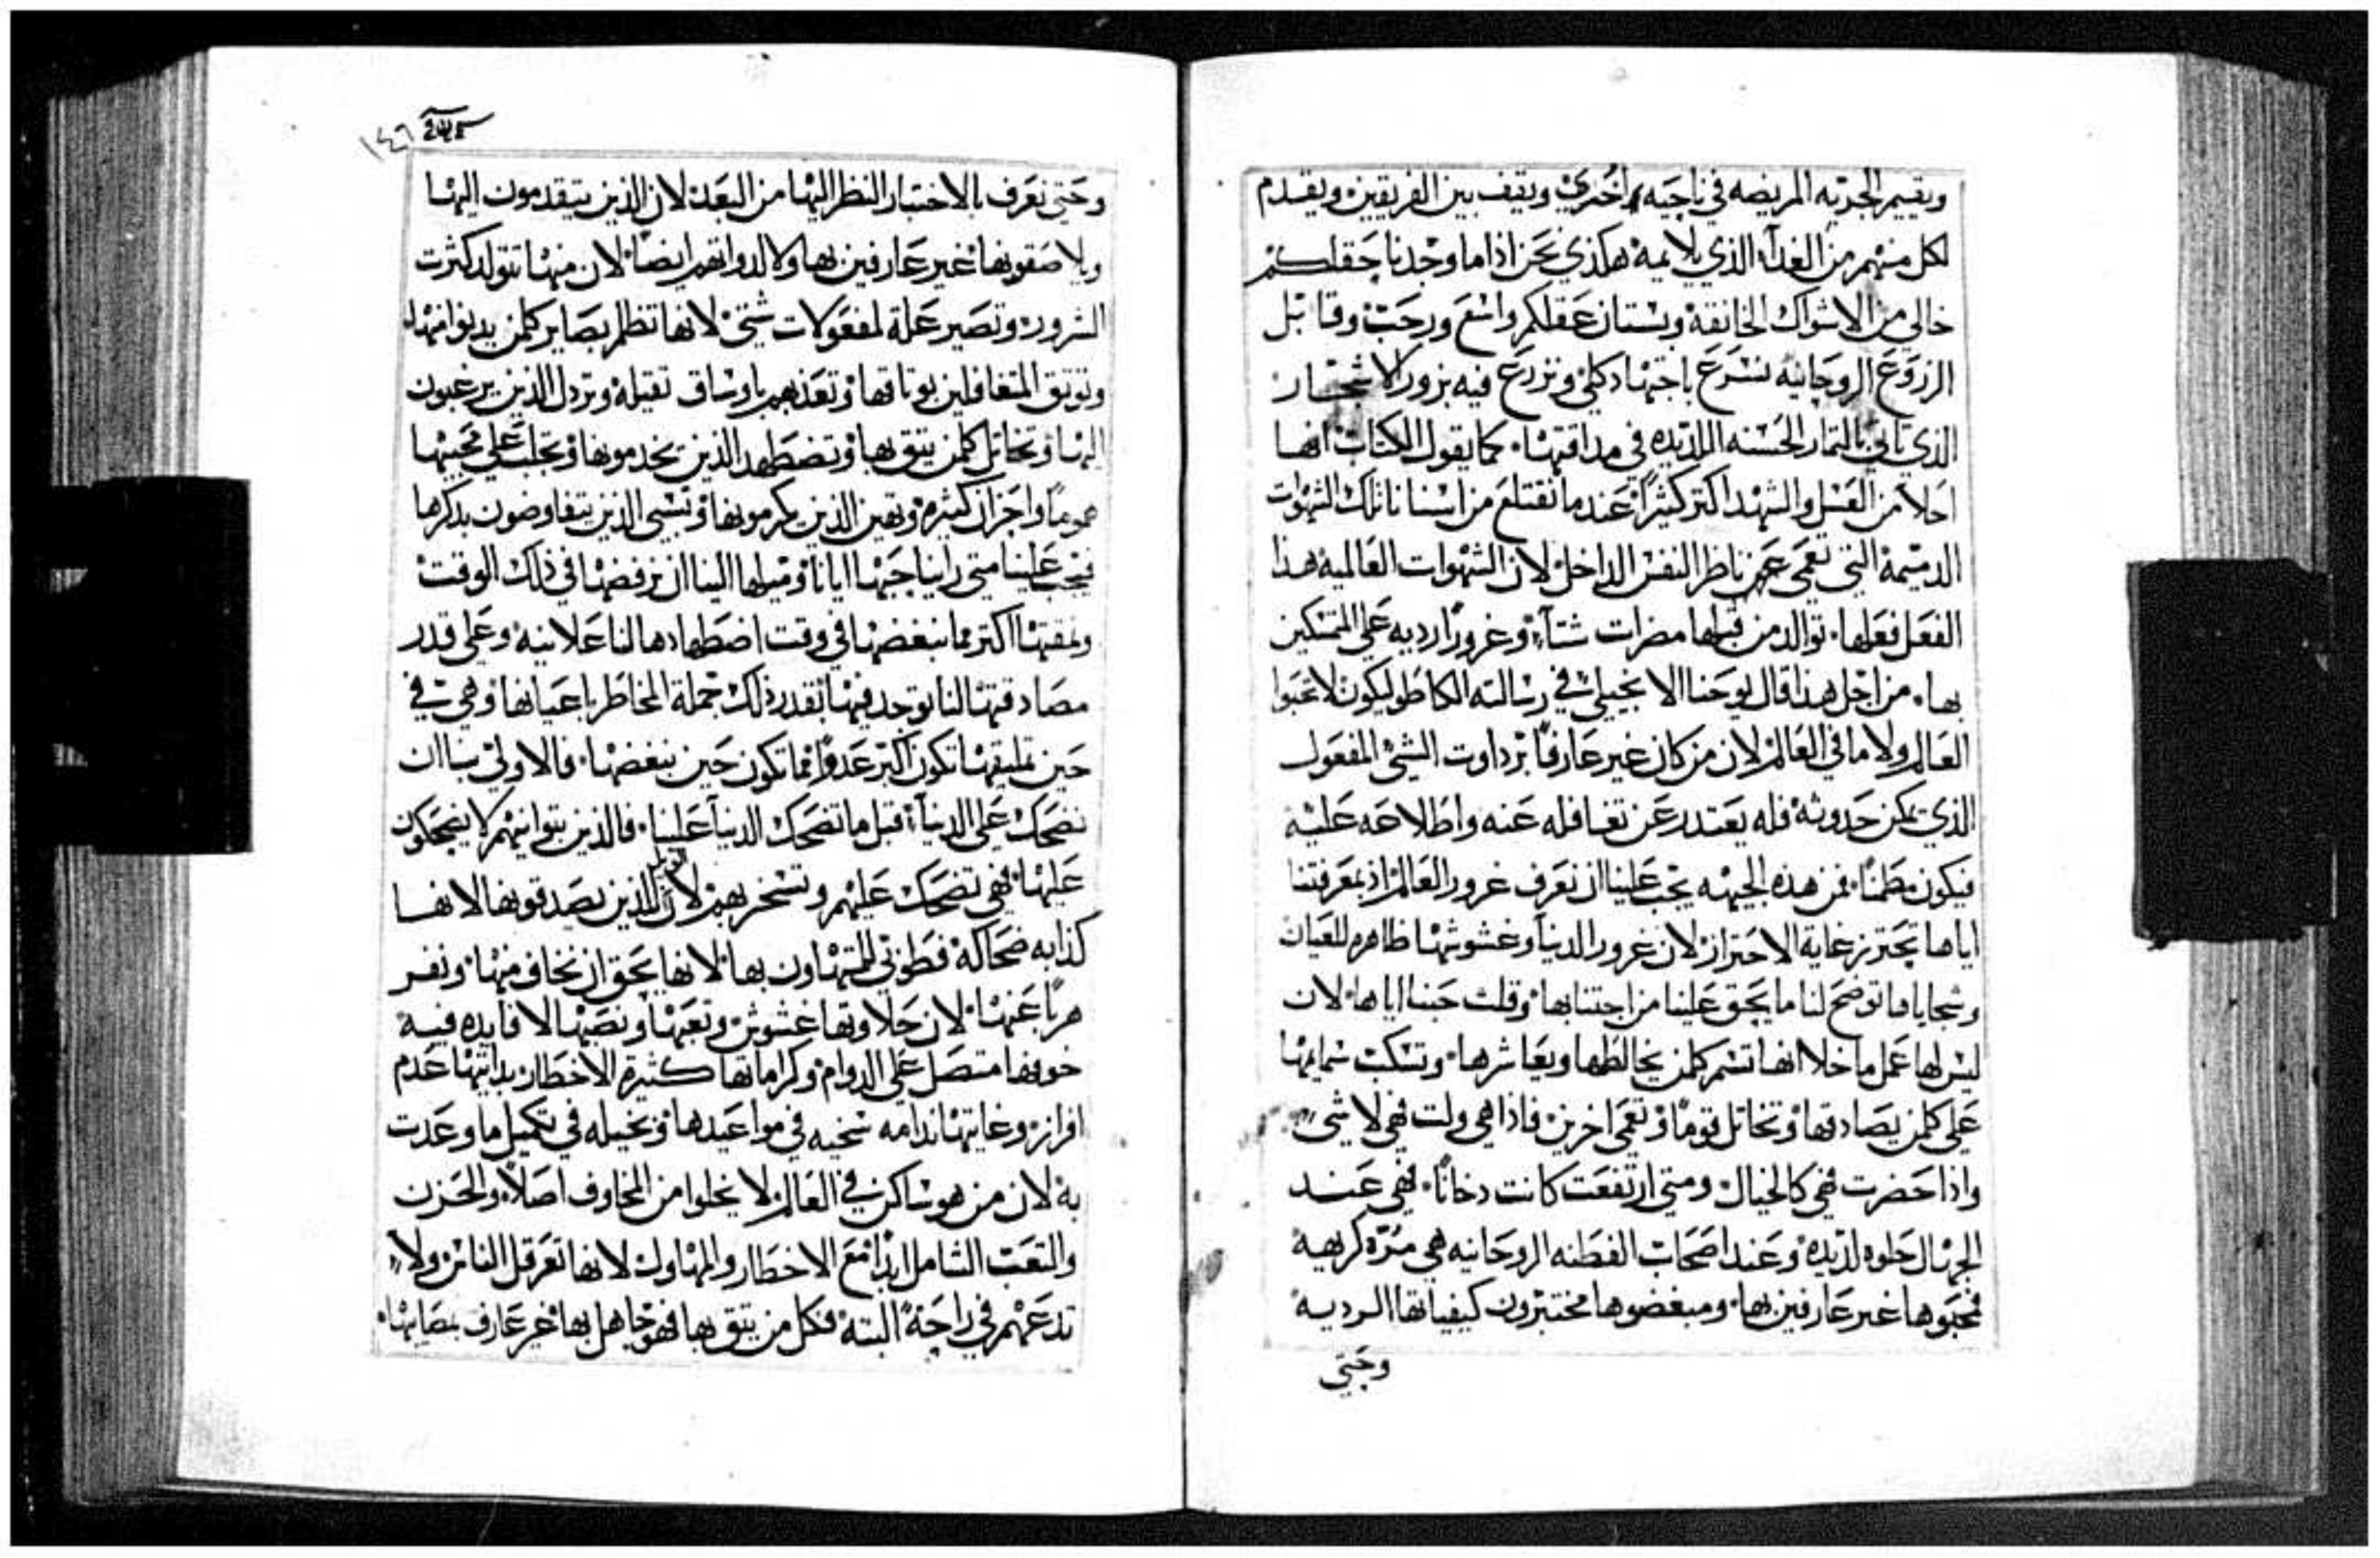 ويقيم الجديه المريضه في ناحيه اخري ويقف بين الفريقين ويقدم
لكل منهم من الغدآ الذي يلايمه هكذي نحن اذا ما وجدنا حقلكم
خالي من الاشواك الخانقة وبستان عقلكم واسع ورحب وقابل
الزروع الروحانيه نسرع باجتهاد كلي ونزرع فيه بزور الاشجار
الذي تاتي بالتمار الحسنه اللديده في مداقتها. كما يقول الكتاب انها
احلا من العسل والشهد اكتر كثيرًا عند ما نقتلع من اسنانا تلك الشهوات
الدميمة التي تعمي عين ناظر النفس الداخل لان الشهوات العالمية هذا
الفعل فعلها. توالد من قبلها مضرات شتآ وغرورًا رديه علي المتمسكين
بها. من اجل هذا قال يوحنا الانجيلي في رسالته الكاطوليكون لا تحبوا
العالم ولا ما في العالم لان من كان غير عارفًا برداوت الشي المفعول
الذي يمكن حدوثه فله يعتدر عن تغافله عنه واطلاعه عليه
فيكون مطمنًا. فمن هذه الجيهه يجب علينا ان نعرف غرور العالم اذ بمعرفتنا
اياها نحترز غاية الاحتراز لان غرور الدنيا وغشوشتها ظاهره للعيان
وسجاياها توضح لنا ما يحق علينا من اجتنابها وقلت حبنا اياها لان
ليس لها عمل ما خلا انها تسم كلمن يخالطها ويعاشرها. وتسكب سمايمها
علي كلمن يصادقها وتخاتل قومًا وتعمي اخرين فاذا هي ولت فهي لا شي
واذا حضرت فهي كالخيال ومتي ارتفعت كانت دخانًا. فهي عند
الجهال حلوه لديده وعند اصحاب الفطنه الروحانيه هي مرّه كريهة
فمحبوها غير عارفين بها. ومبغضوها مختبرون كيفياتها الرديه
وحتي
١٤٦
وحتي نعرف بالاختبار النظر اليها من البعد لان الذين يتقدمون اليها
ويلاصقونها غير عارفين بها ولا لدواتهم ايضًا لان منها تتولد كثرت
الشرور وتصير عملة لمفعولات شتي لانها تظلم بصاير كلمن يدنوا منها
وتوتق المتغافلين بوتاقها وتعذبهم باوساق تقيله وتردل الذين يرغبون
اليها وتخاتل كلمن يتق بها وتضطهد الذين يخدمونها وتجلب علي محبيها
همومًا واحزان كثيره وتهين الذين يكرمونها وتنسي الذين يتفاوضون بدكرها
فيجب علينا متي راينا حبها ايانا وميلها الينا ان نرفضها في ذلك الوقت
ونمقتها اكتر مما نبغضها في وقت اضطهادها لنا علانيه وعلي قدر
مصادقتها لنا يوجد فيها بقدر ذلك جملة المخاطر باعيانها وهي في
حين تمليقها تكون اكبر عدوًا مما تكون حين نبغضها. فالاولي بنا ان
نضحك علي الدنيا قبل ما تضحك الدنيا علينا. فالذين بتوانيهم لا يضحكون
عليها فهي تضحك عليهم وتسخر بهم لان الذين يصدقونها لانها
كذابه ضحاكة فطوبي للمتهاون بها لانها يحق ان نخاف منها ونفر
هربًا عنها لان حلاوتها غشوش وتعبها ونصبها لا فايده فيه
خوفها متصل علي الدوام وكراماتها كثيرة الاخطار بدايتها عدم
افراز وغايتها ندامه سخيه في مواعيدها وبخيله في تكميل ما وعدت
به لان من هو ساكن في العالم لا يخلوا من المخاوف اصلًا والحزن
والتعب الشامل ابدًا مع الاخطار والمهاول لانها تعرقل الناس ولا
تدعهم في راحةً البته فكل من يتق بها فهو جاهل بها غير عارف بمصايبها